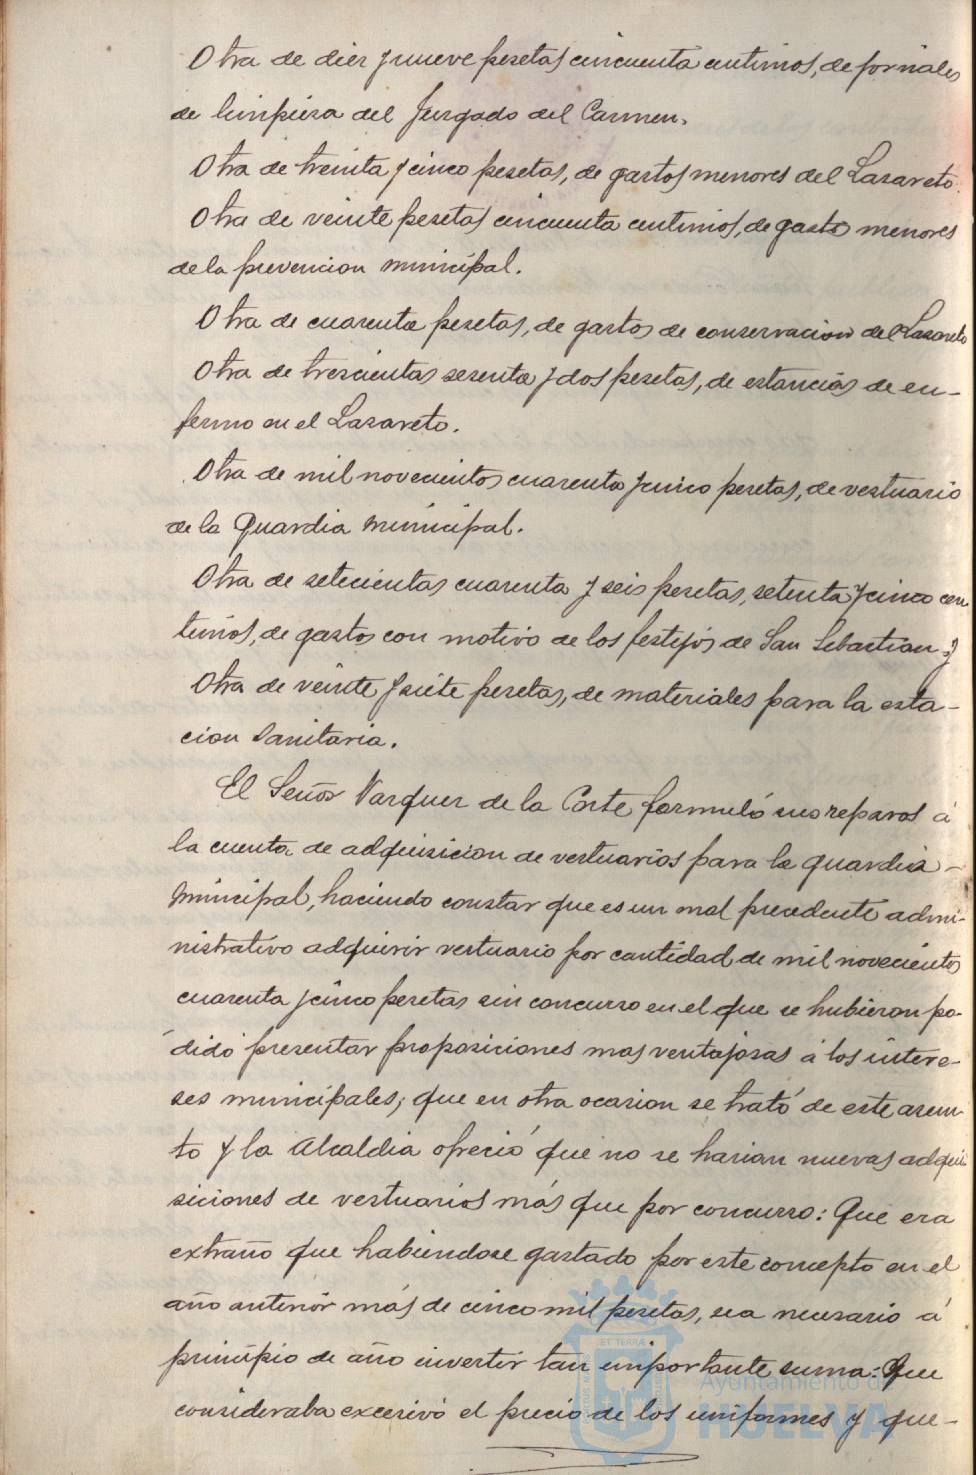 Otra de diez y nueve pesetas cincuenta centimos, de jornales
de limpieza del Juzgado del Carmen.
Otra de treinta y cinco pesetas, de gastos menores del Lazareto.
Otra de veinte pesetas cincuenta centimos, de gasto menores
de la prevencion municipal.
Otra de cuarenta pesetas, de gastos de conservacion del Lazareto
Otra de trescientas sesenta y dos pesetas, de estancias de en-
fermo en el Lazareto.
Otra de mil novecientos cuarenta y cinco pesetas, de vestuario
de la Guardia municipal.
Otra de setecientas cuarenta y seis pesetas, setenta y cinco cen
timos, de gastos con motivo de los festejos de San Sebastian; y
Otra de veinte y siete pesetas, de materiales para la esta-
cion Sanitaria.
El Señor Vazquez de la Corte formuló sus reparos á
la cuenta de adquisicion de vestuarios para la guardia
municipal, haciendo constar que es un mal precedente admi-
nistrativo adquirir vestuario por cantidad de mil novecientos
cuarenta y cinco pesetas sin concurso en el que se hubieran po-
dido presentar proposiciones mas ventajosas á los intere-
ses municipales; que en otra ocasion se trató de este asun-
to y la Alcaldia ofreció que no se harian nuevas adqui
siciones de vestuarios más que por concurso: Que era
extraño que habiendose gastado por este concepto en el
año anterior más de cinco mil pesetas, sea necesario á
principio de año invertir tan importante suma: Que
consideraba excesivo el precio de los uniformes y que-
ET TERRÆ
Ayuntamiento de
HUELVA